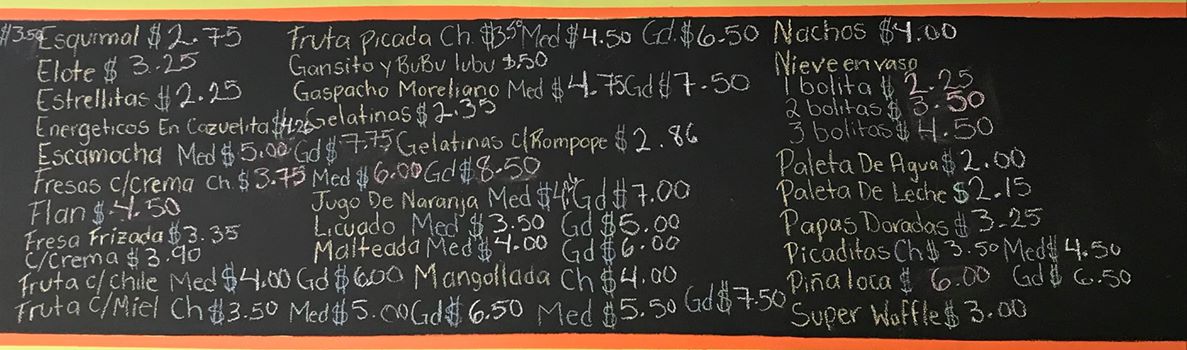 $3.50 Esquimal $2.75
Elote $3.25
Estrellitas $2.25
Energeticos En Cazuelita $4.26
Escamocha Med $5.00 Gd $7.75
Fresas c/crema Ch. $3.75 Med $6.00 Gd $8.50
Flan $4.50
Fresa Frizada $3.35
C/Crema $3.90
Fruta c/chile Med $4.00 Gd $6.00
Fruta C/Miel Ch $3.50 Med $5.00 Gd $6.50
Fruta Picada Ch. $3.50 Med $4.50 Gd. $6.50
Gansito y BuBu lubu $.50
Gaspacho Moreliano Med $4.75 Gd $7.50
Gelatinas $2.35
Gelatinas c/Rompope $2.86
Jugo De Naranja Med Gd $7.00
Licuado Med $3.50 Gd $5.00
Malteada Med $4.00 Gd $6.00
Mangollada Ch $4.00
Med $5.50 Gd $7.50
Nachos $4.00
Nieve en vaso
1 bolita $2.25
2 bolitas $3.50
3 bolitas $4.50
Paleta De Agua $2.00
Paleta De Leche $2.15
Papas Doradas $3.25
Picaditas Ch $3.50 Med $4.50
Piña loca $6.00 Gd $6.50
Super Waffle $3.00